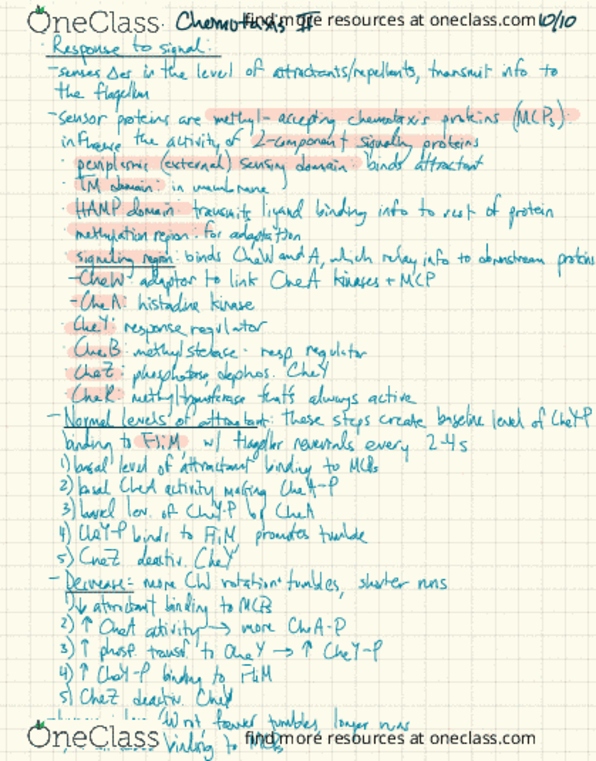 OneClass Chemotaxis II find more resources at oneclass.com 10/10
Response to signal:
- senses Δes in the level of attractants/repellants, transmit info to
the flagellum
- sensor proteins are methyl-accepting chemotaxis proteins (MCPs)
influence the activity of 2-component signaling proteins
· periplasmic (external) sensing domain: binds attractant
· TM domain: in membrane
· HAMP domain: transmits ligand binding info to rest of protein
· methylation region: for adaptation
· signaling region: binds CheW and A, which relay info to downstream proteins
- CheW: adaptor to link CheA kinases + MCP
- CheA: histidine kinase
CheY: response regulator
CheB: methylesterase · resp regulator
CheZ: phosphatase, dephos. CheY
CheR: methyltransferase that's always active
- Normal levels of attractant: these steps create baseline level of CheY-P
binding to FliM w/ flagellar reversals every 2-4s
1) basal level of attractant binding to MCPs
2) basal CheA activity making CheA-P
3) basal lev. of CheY-P by CheA
4) CheY-P binds to FliM promotes tumble
5) CheZ deactiv. CheY
- Decrease = more CW rotation + tumbles, shorter runs
1) ↓ attractant binding to MCPs
2) ↑ CheA activity → more CheA-P
3) ↑ phosp. transf. to CheY → ↑ CheY-P
4) ↑ CheY-P binding to FliM
5) CheZ deactiv. CheY
fewer tumbles, longer runs
OneClass binding to MCPs find more resources at oneclass.com